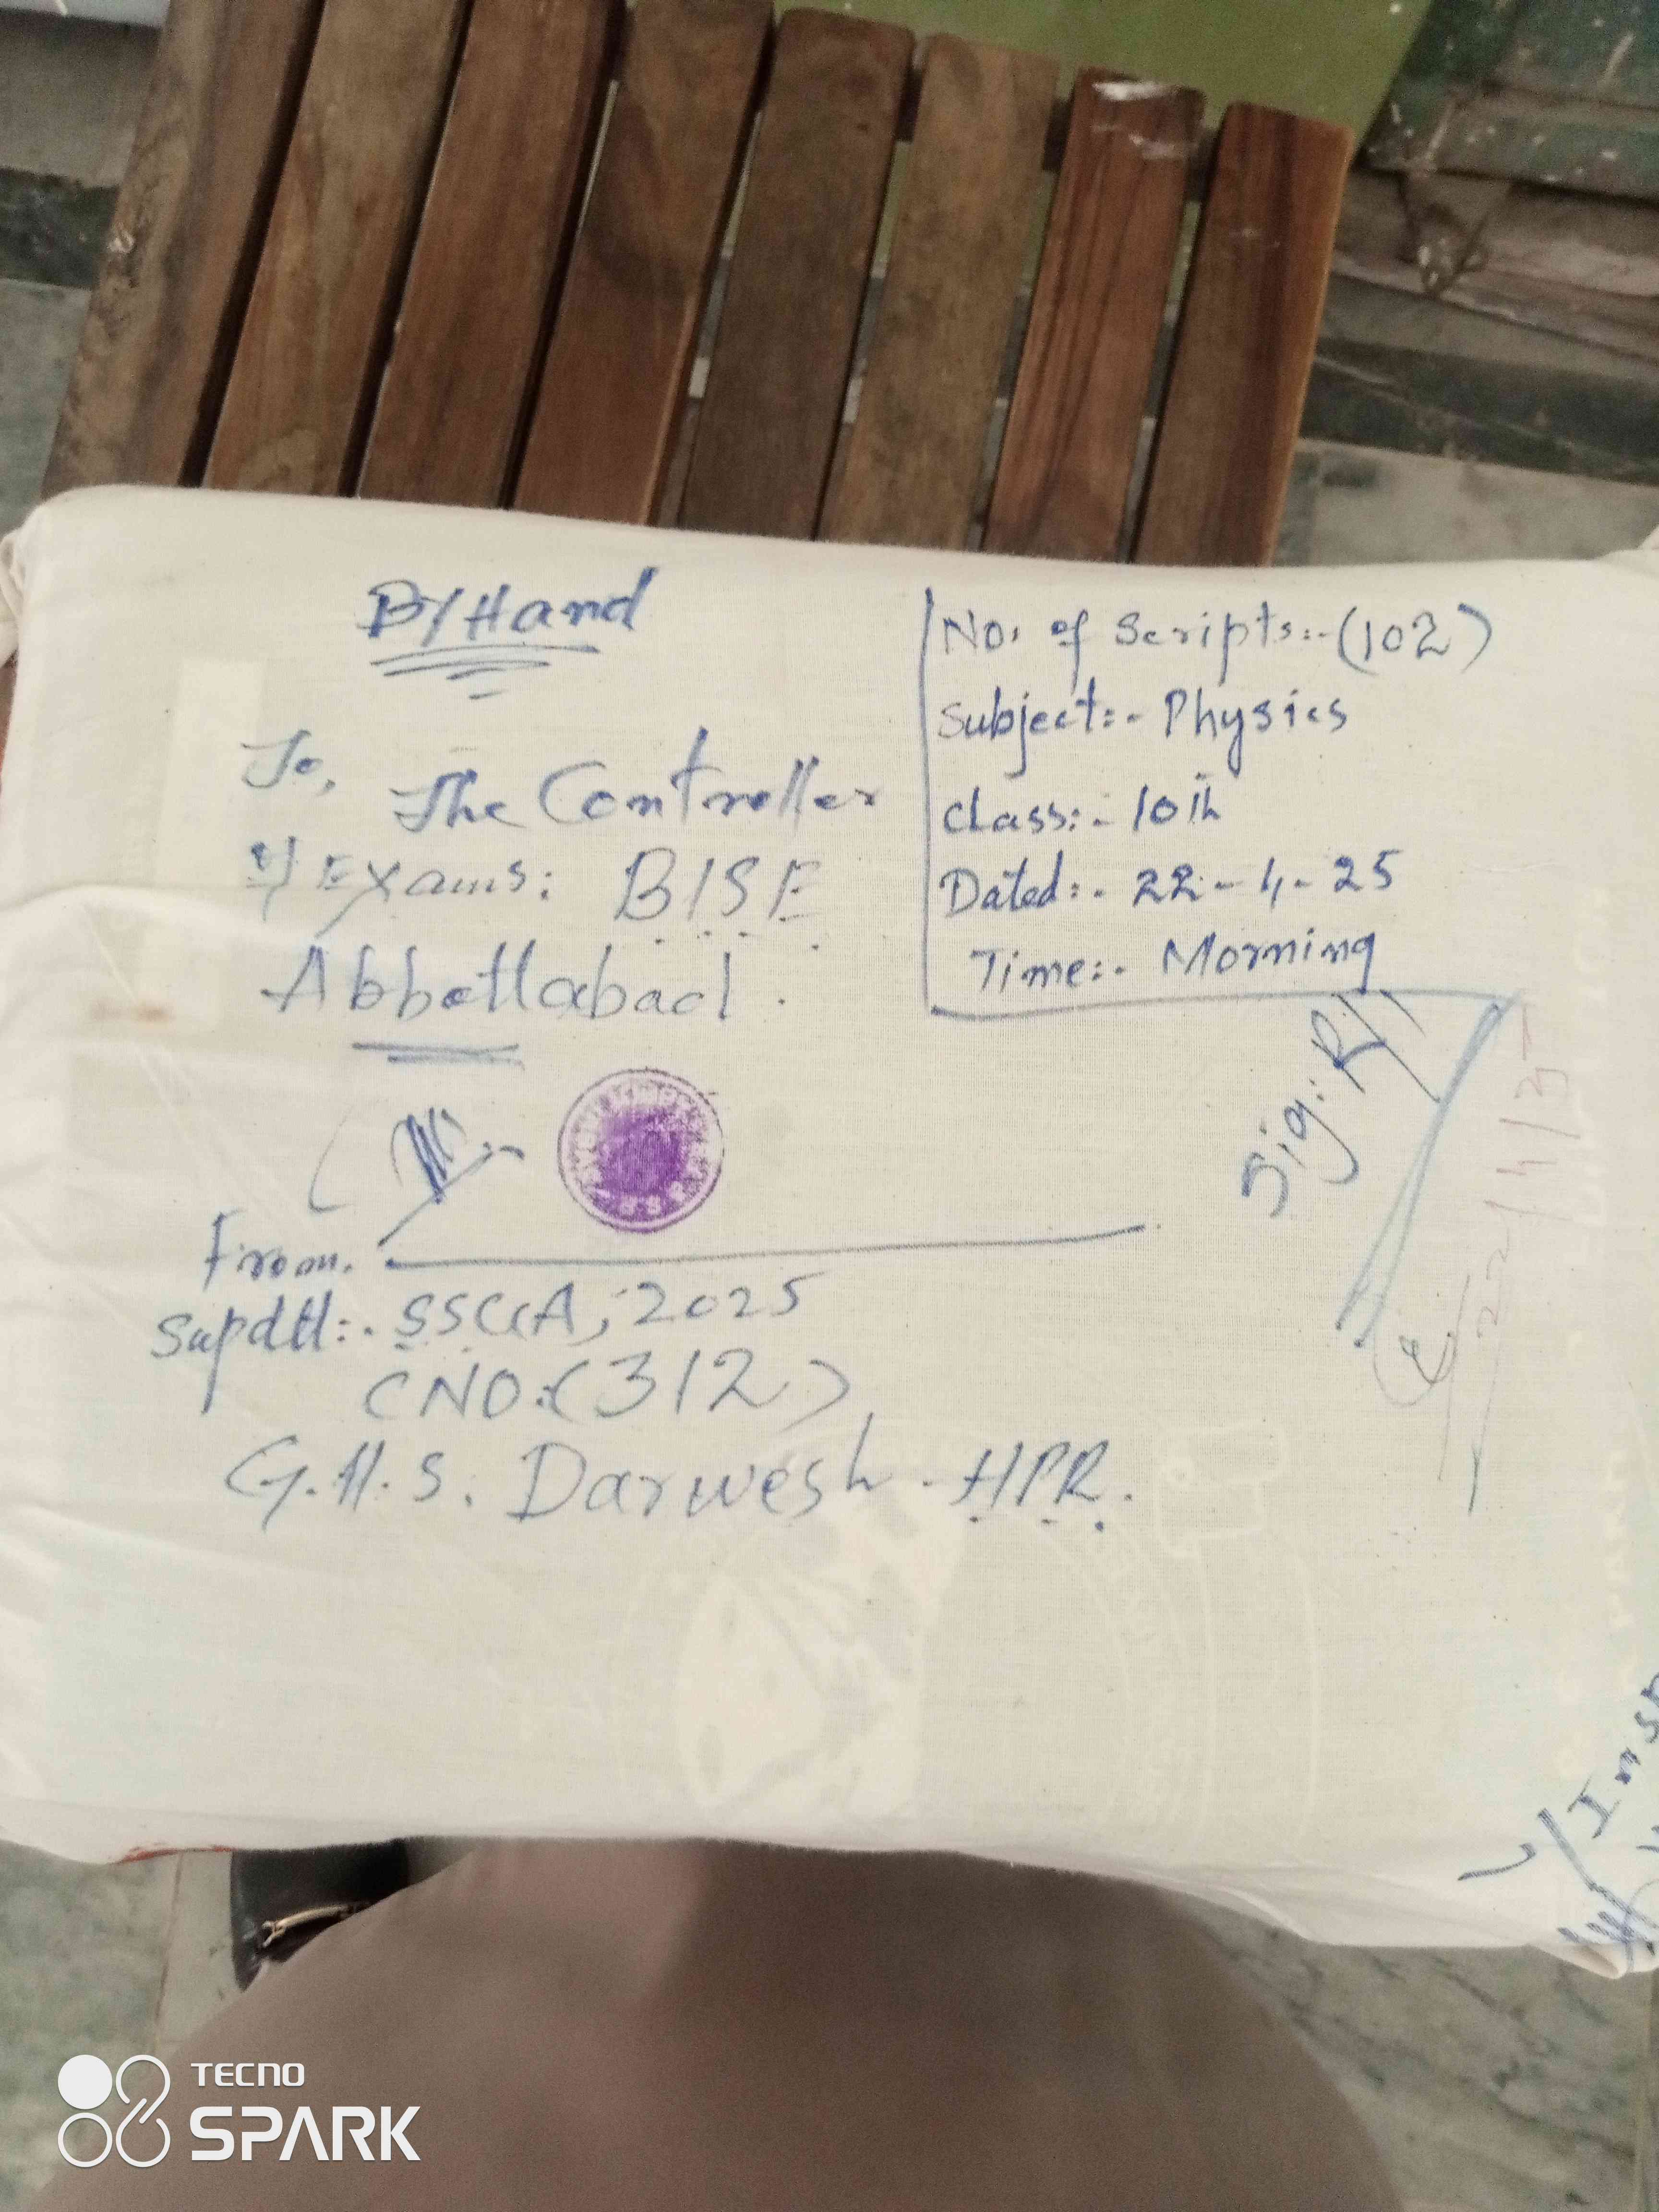 By Hand
To,
The Controller
of Exams: BISE
Abbottabad.
No. of Scripts:-(102)
Subject:- Physics
Class:- 10th
Dated:- 22-4-25
Time:- Morning
Sig:
From.
Supdtt:- SSC(A), 2025
CNO:(312)
G.H.S. Darwesh. HPR.
TECNO
SPARK